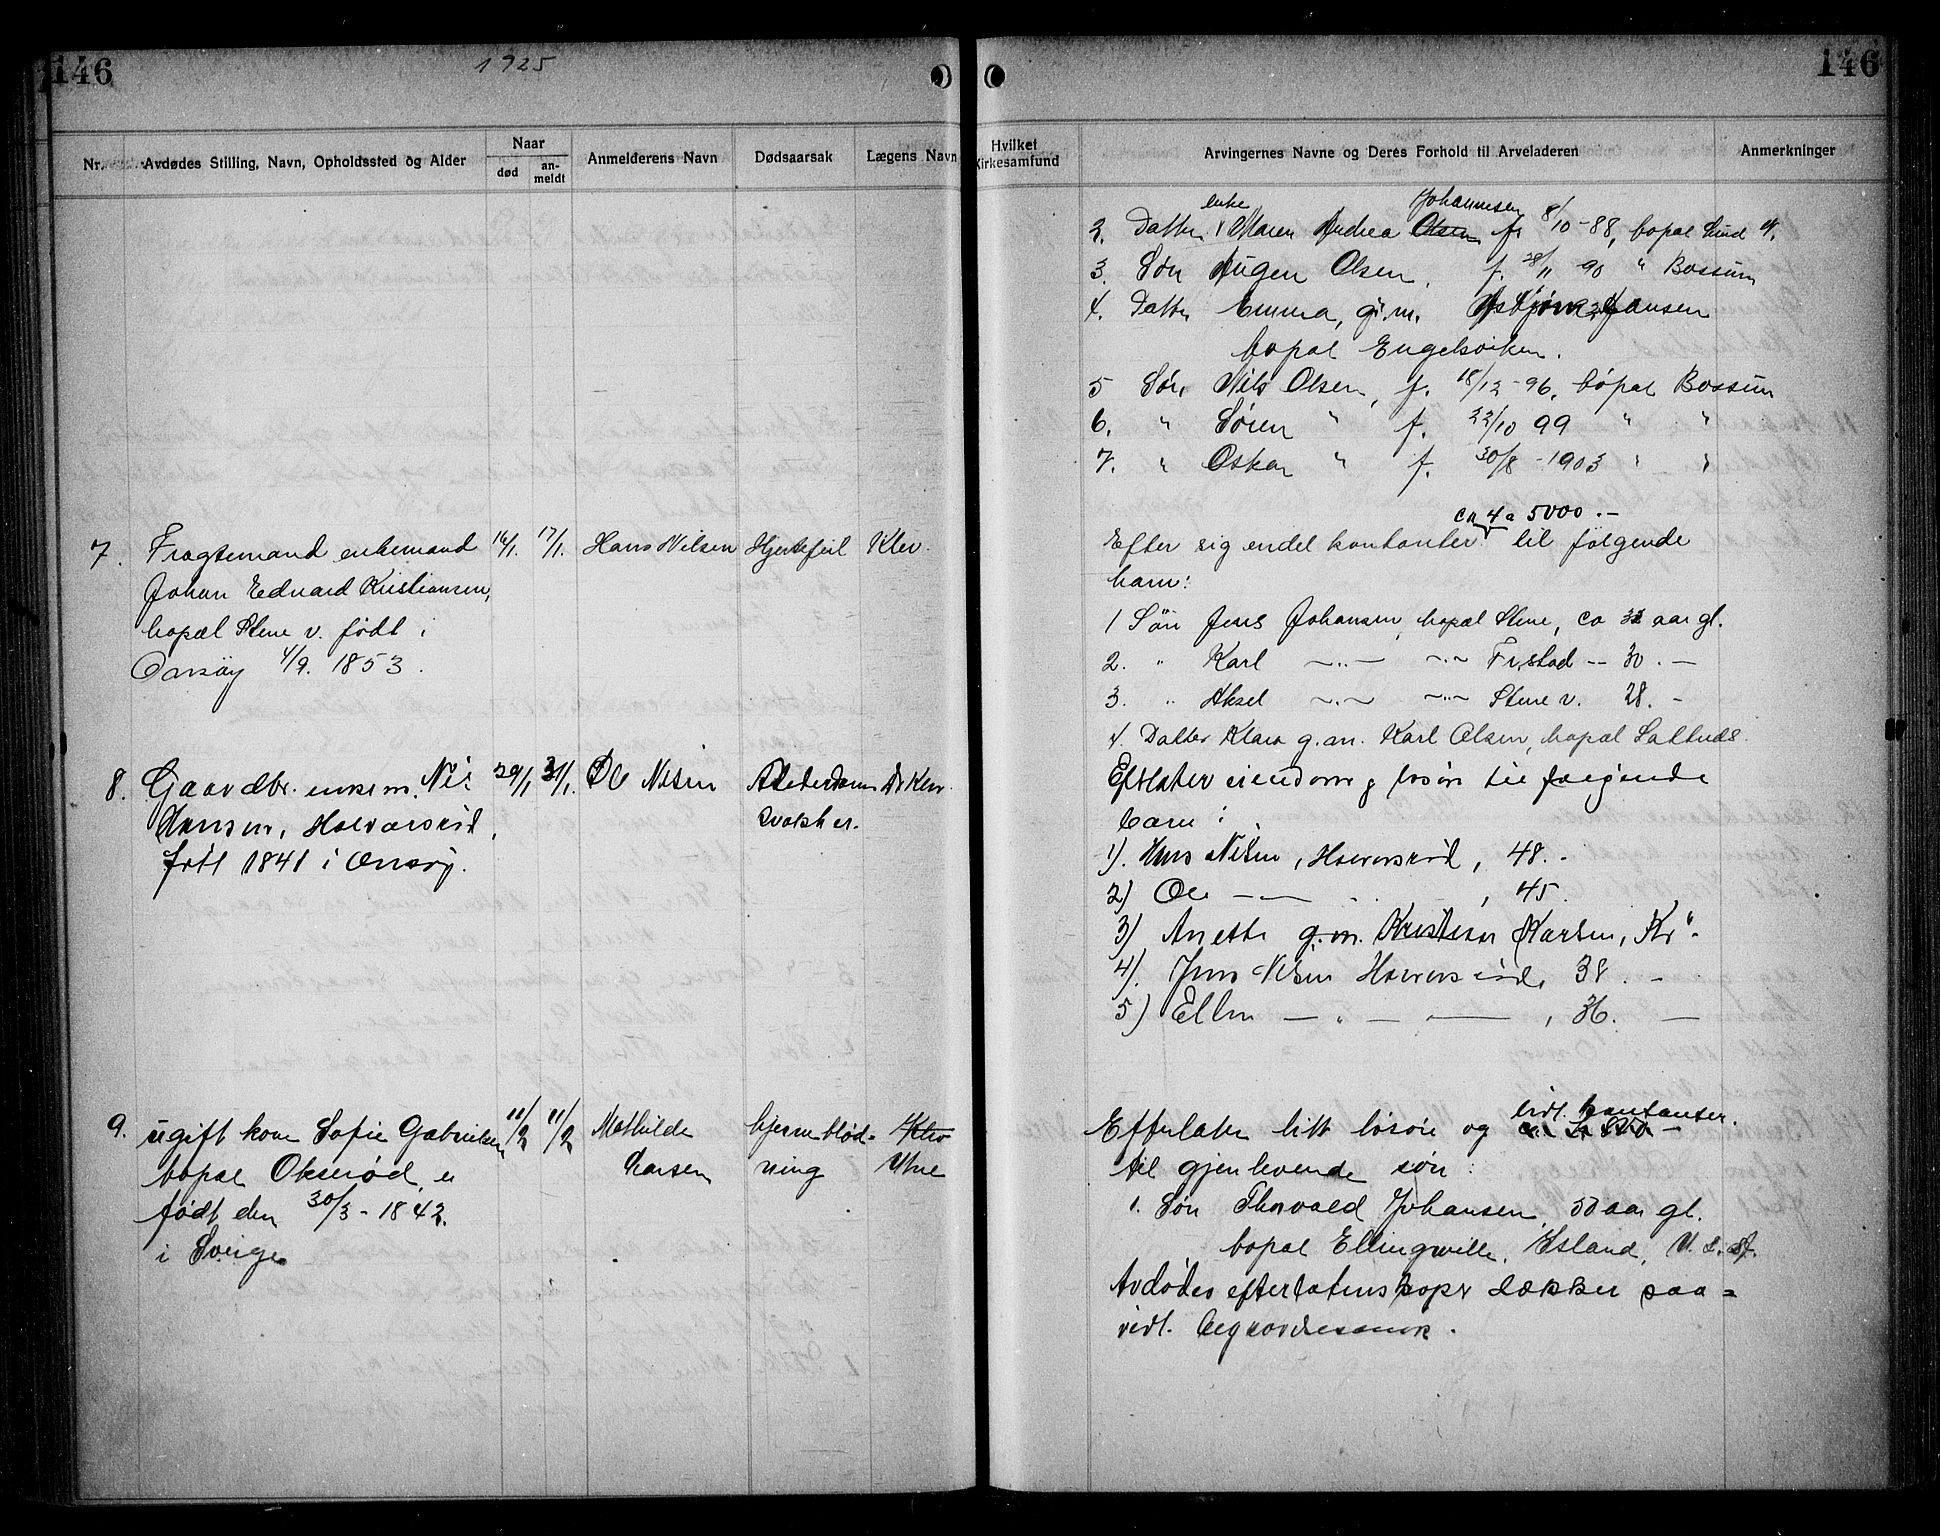 146
1925
146
Nr.
Avdødes Stilling, Navn, Opholdssted og Alder
Naar
død
an-
meldt
Anmelderens Navn
Dødsaarsak
Lægens Navn
Hvilket
Kirkesamfund
Arvingernes Navne og Deres Forhold til Arveladeren
Anmerkninger
enke Johannesen
2. Datter Maren Andrea Olsen f. 8/10-88, bopæl
3. Søn Augen Olsen, f. 28/11 90 " Bossum
4. Datter Emma, g.m. Hansen
bopæl Engelsviken.
5 Søn Nils Olsen, f. 18/12-96, bopæl Bossum
6. " Søren " f. 22/10 99 " "
7. " Oskar " f. 30/8-1903 " "
7. Fragtemand enkemand
Johan Edvard Kristiansen,
bopæl Stene v. født i
Onsøy 4/9. 1853.
16/1. 17/1.
Hans Nilsen
Hjertefeil
Klev.
ca 4 a 5000.-
Efter sig endel kontanter til følgende
barn:
1 Søn Jens Johansen, bopæl Stene, ca aar gl.
2. " Karl —"— —"— Fr.stad -- 30. —
3. " Aksel —"— —"— Stene v. 28. -
4. Datter Klara g.m. Karl Olsen, bopæl
8. Gaardbr. enkem. Nils
Hansen,
født 1841 i Onsøy.
29/1 31/1.
Ole Nilsen
Alderdoms
svakhet.
Dr Klev.
Efterlater eiendom og løsøre til følgende
barn:
1). Hans Nilsen, , 48. -
2) Ole —— , 45
3) Anette g.m. Kristian Karlsen, Kr".
4). Jens Nilsen , 38. -
5) Ellen — " — —— , 36. —
9. ugift kone Sofie Gabrielsen
bopæl Okserød, er
født den 30/3-1842.
i Sverige
11/2 11/2
Mathilde
Larsen
hjerneblød-
ning
Klev
Utne
vidt. kontanter.
Efterlater litt løsøre og
til gjenlevende søn:
1. Søn Thorvald Johansen, 50 aar gl.
bopæl Ellingwille, Island, U. S. A.
Avdødes efterlatenskaper dækker saa-
vidt. begravelsesomk.